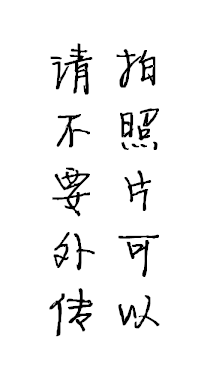 拍照片可以
请不要外传